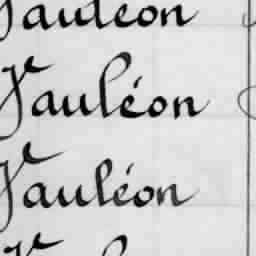 Vauléon
Vauléon
Vauléon